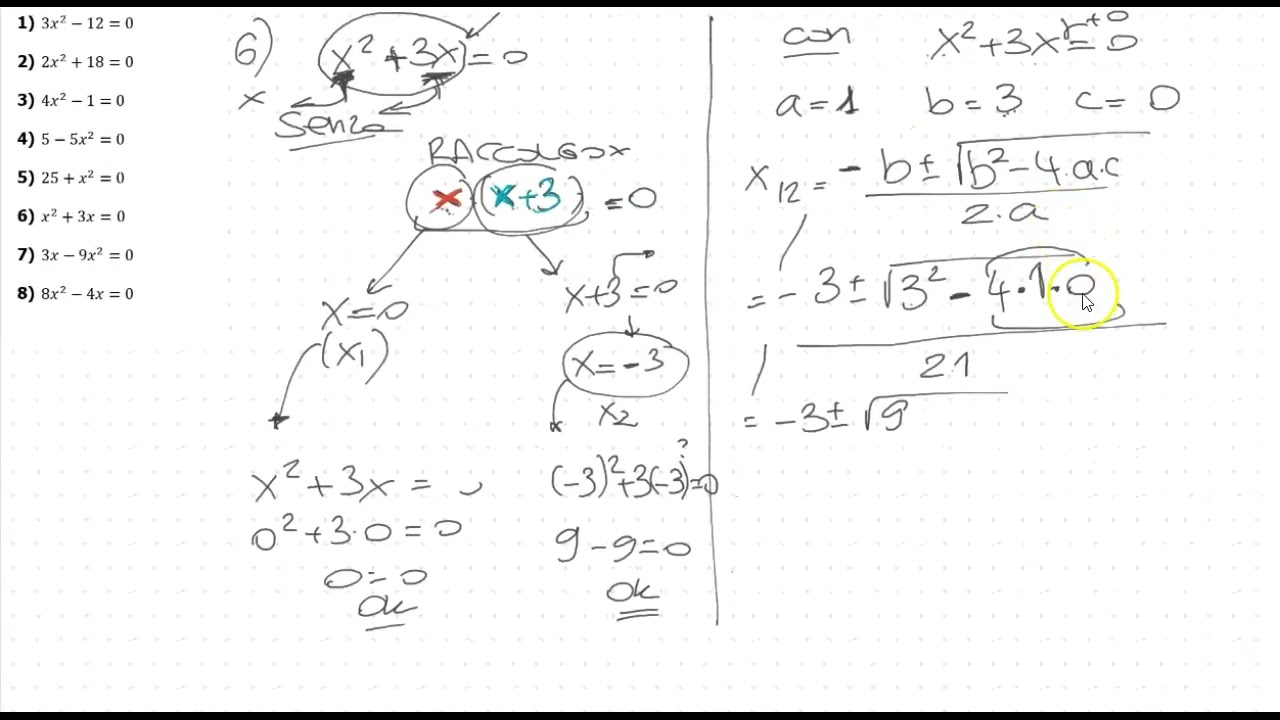 1) 3x² − 12 = 0
2) 2x² + 18 = 0
3) 4x² − 1 = 0
4) 5 − 5x² = 0
5) 25 + x² = 0
6) x² + 3x = 0
7) 3x − 9x² = 0
8) 8x² − 4x = 0
6) x² + 3x = 0
x
Senza
RACCOLGO x
x (x+3) = 0
x = 0
(x₁)
x+3 = 0
x = −3
x₂
x² + 3x = 0
0² + 3·0 = 0
0 = 0
Ok
?
(−3)² + 3(−3) = 0
9 − 9 = 0
Ok
con x² + 3x + 0 = 0
a = 1 b = 3 c = 0
x₁₂ = − b ± √b² − 4·a·c
2·a
= − 3 ± √3² − 4·1·0
2·1
= − 3 ± √9